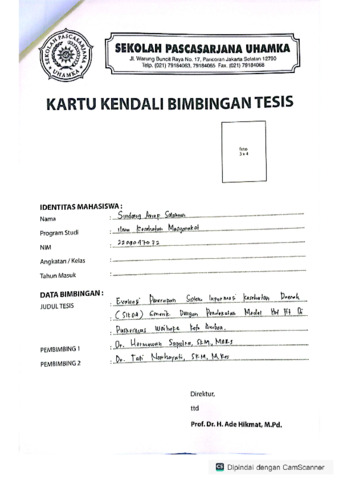 SEKOLAH PASCASARJANA
UHAMKA
SEKOLAH PASCASARJANA UHAMKA
Jl. Warung Buncit Raya No. 17, Pancoran Jakarta Selatan 12790
Telp. (021) 79184063, 79184065 Fax. (021) 79184068
KARTU KENDALI BIMBINGAN TESIS
3 x 4
IDENTITAS MAHASISWA :
Nama :
Program Studi : Ilmu Kesehatan Masyarakat
NIM :
Angkatan / Kelas :
Tahun Masuk :
DATA BIMBINGAN :
JUDUL TESIS : Evaluasi Penerapan Sistem Informasi Kesehatan Daerah
(SIKDA) Generik Dengan Pendekatan Model Hot Fit Di
Puskesmas
PEMBIMBING 1 : Dr. Hermawan Saputra, SKM, MARS
PEMBIMBING 2 : Dr. Tati Nurhayati, SKM, M.Kes
Direktur,
ttd
Prof. Dr. H. Ade Hikmat, M.Pd.
CS Dipindai dengan CamScanner